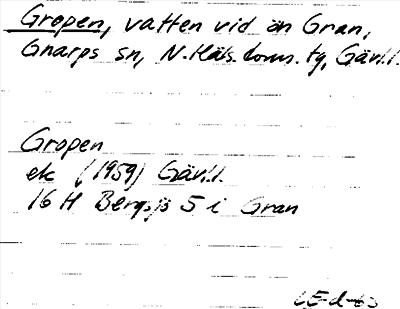 Gropen, vatten vid ån Gran,
Gnarps sn, N. Häls. doms. tg, Gävl.l.
Gropen
ek (1959) Gävl.l.
16 H Bergsjö 5 i Gran